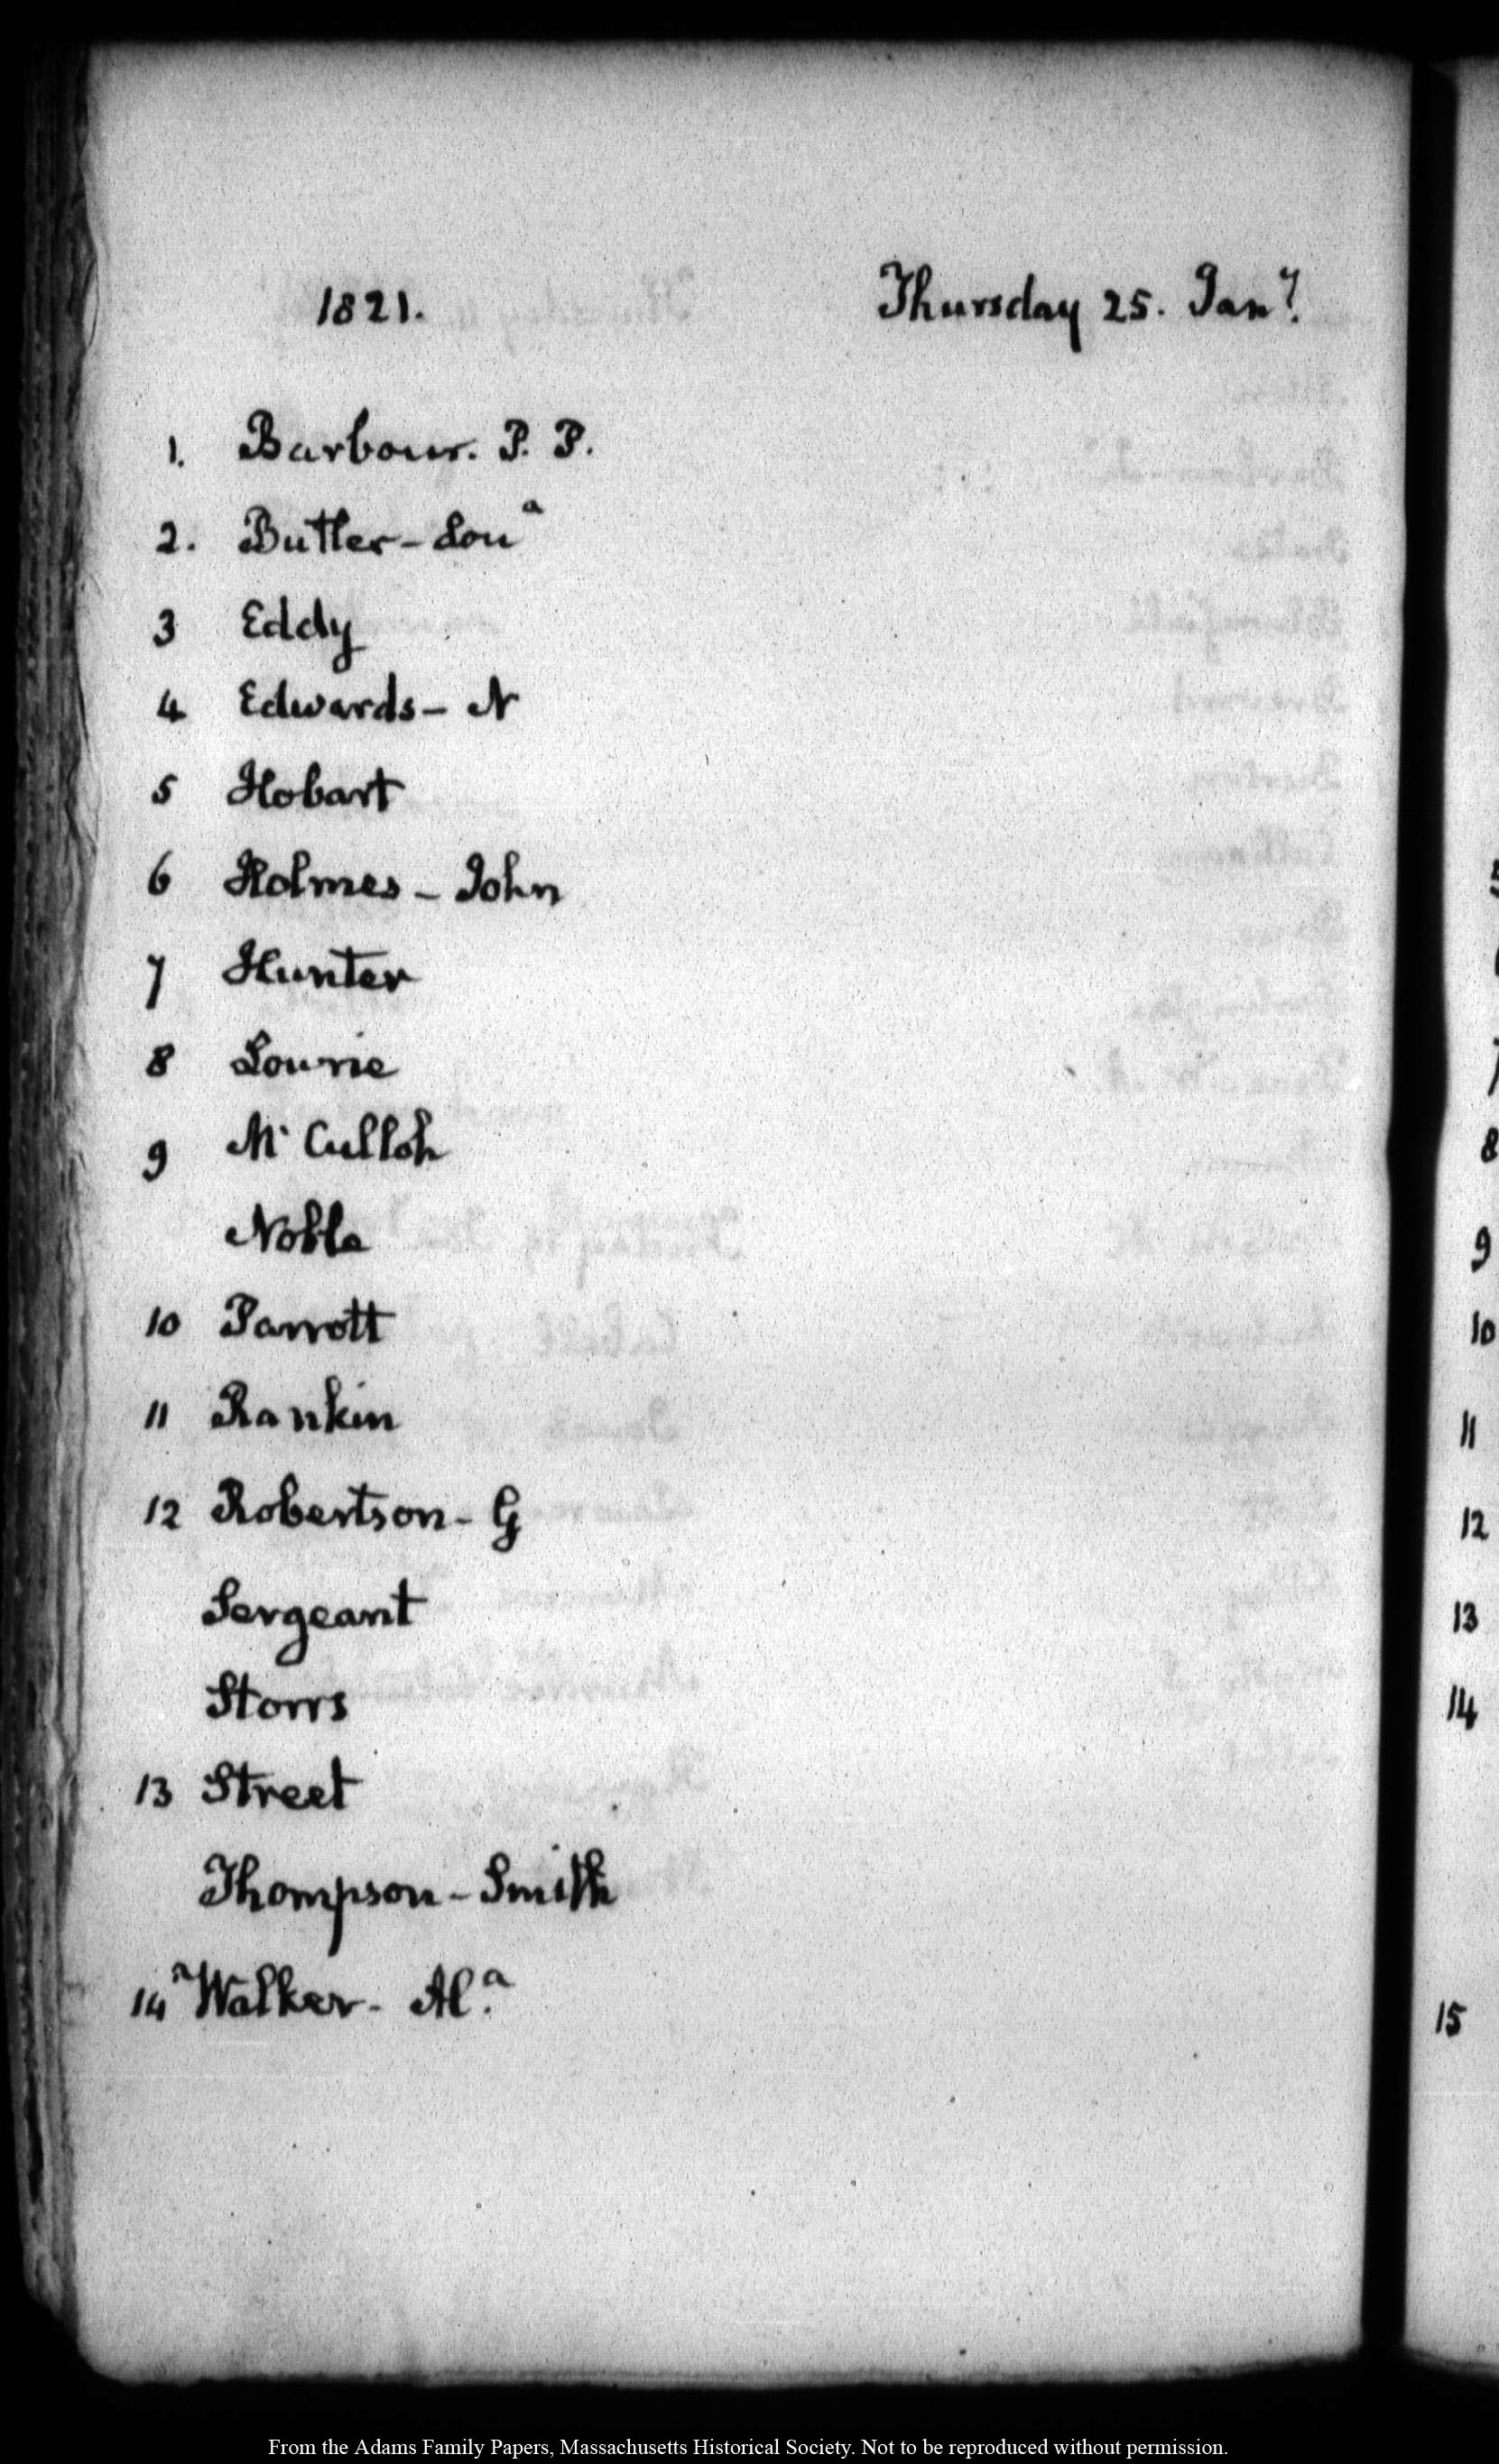 1821. Thursday 25. Jany.
1. Barbour. P. P.
2. Butler - Loua
3 Eddy
4 Edwards - N
5 Hobart
6 Holmes - John
7 Hunter
8 Lowrie
9 Mc Culloh
Noble
10 Parrott
11 Rankin
12 Robertson - G
Sergeant
Storrs
13 Street
Thompson - Smith
14 Walker - Ala.
8
9
10
11
12
13
14
15
From the Adams Family Papers, Massachusetts Historical Society. Not to be reproduced without permission.